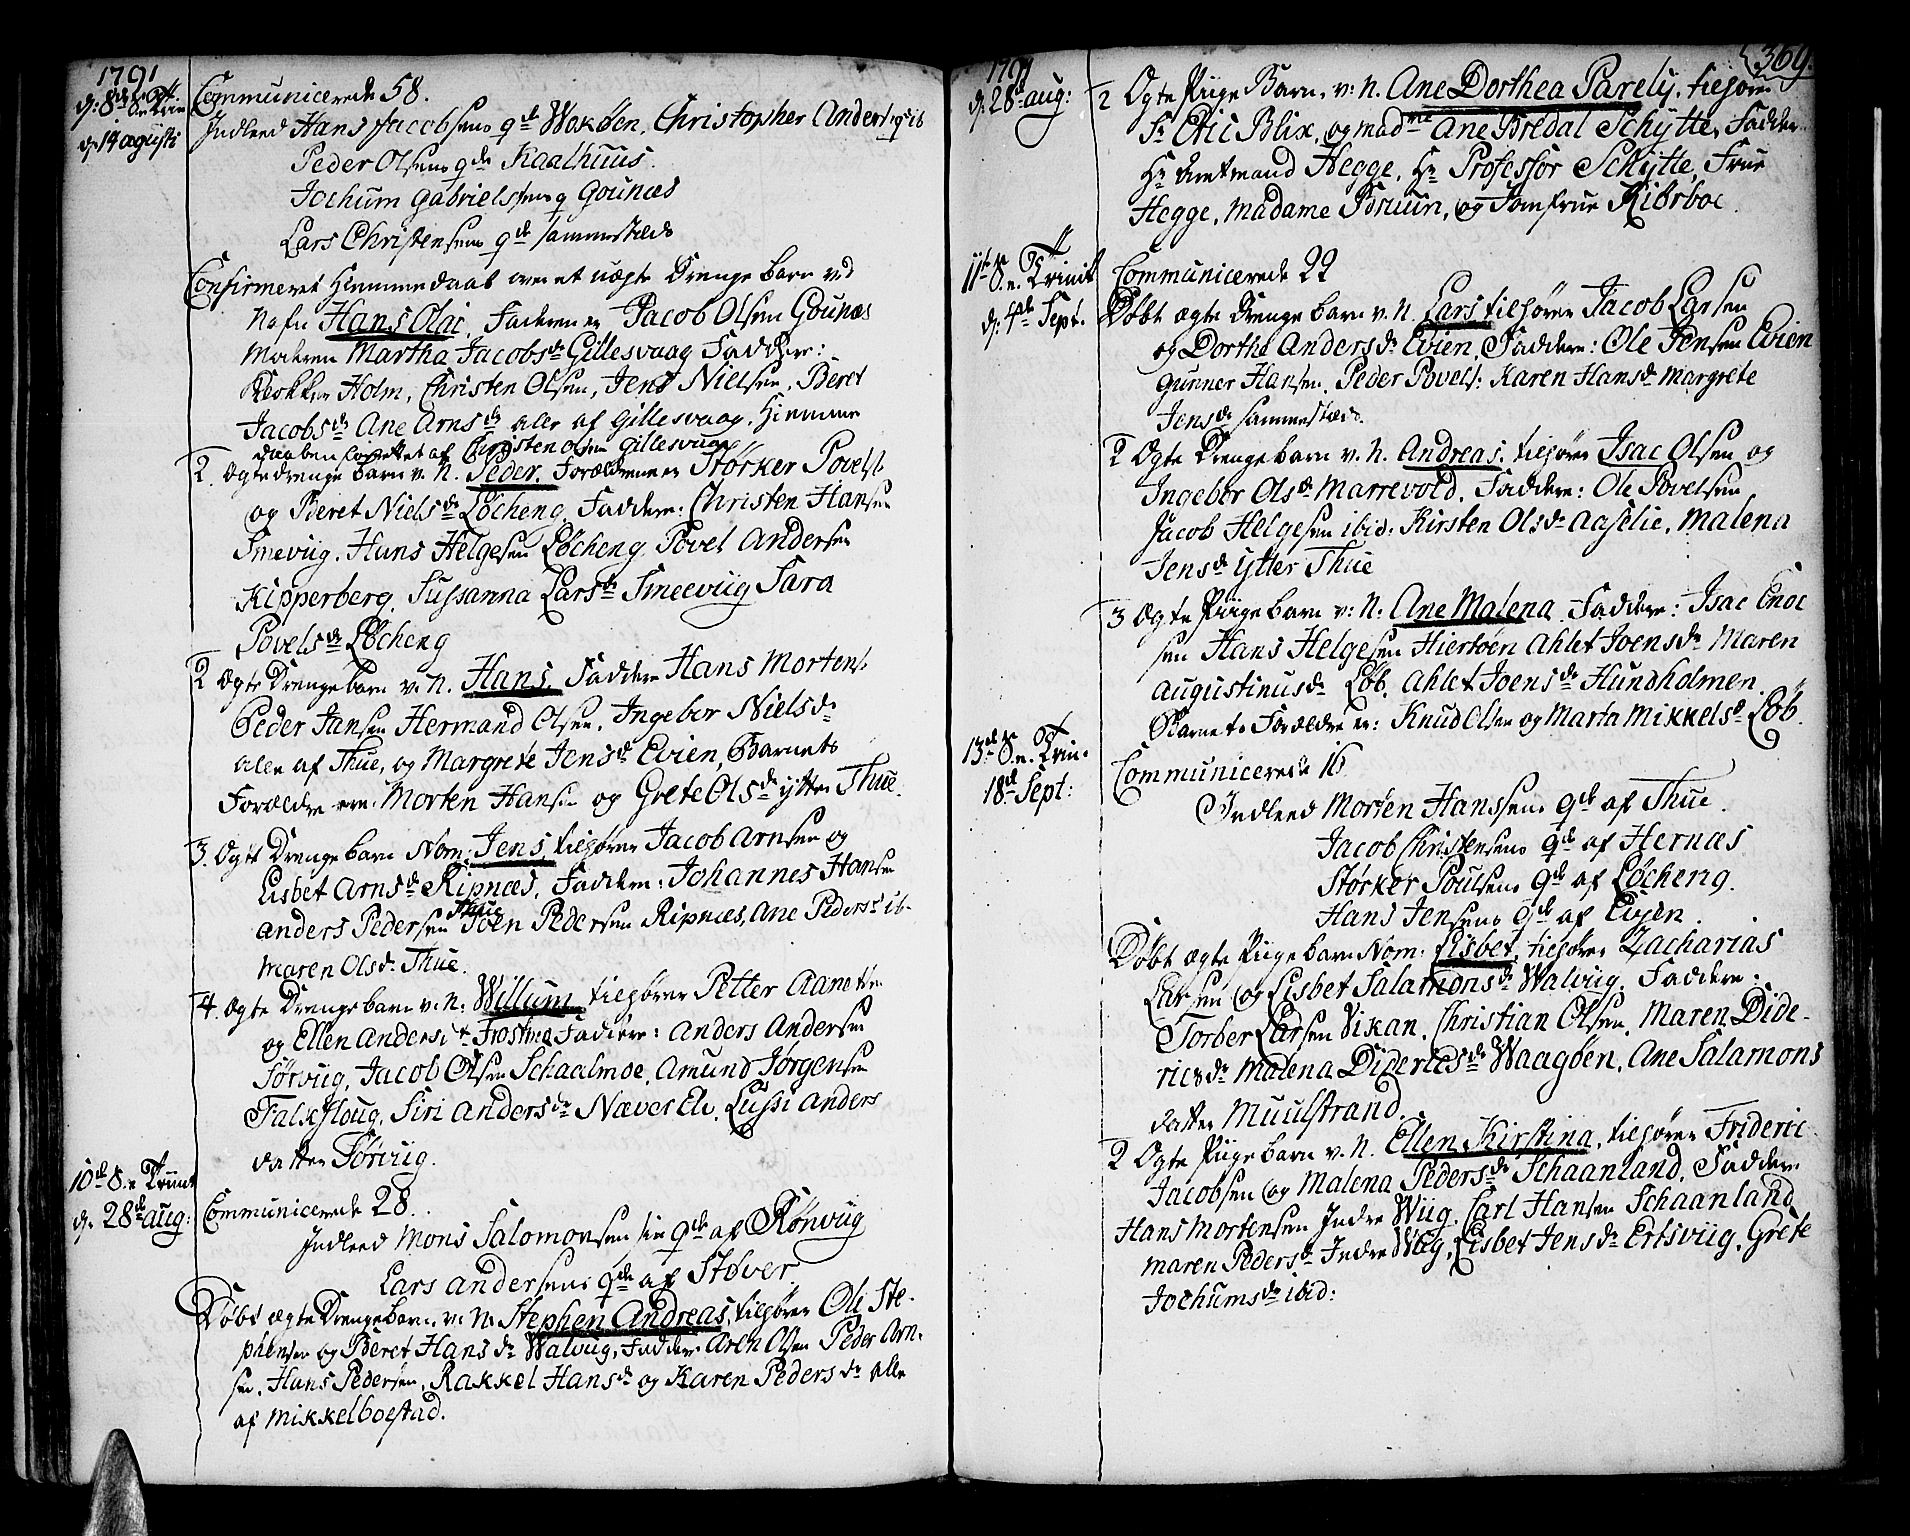 1791
d: 8de S. e. Trin
d: 14 agusti
Communicerede 58.
Indleed Hans Jacobsens qde Wokøen, Christopher Anders: qde ib
Peder Olsens qde Kaalhuus.
Jochum Gabrielssens q Gounæs
Lars Christensens qde sammestæds
Confirmeret Hiemmedaab over et uægte Drenge barn ved
Nafn Hans Olai. Faderen er Jacob Olsen Gounæs
Moderen Martha Jacobsdr Gillesvaag Faddere:
Klokker Holm, Christen Olsen, Jens Nielsen, Beret
Jacobsdr Ane Arnsdr alle af Gillesvaag, Hiemme
daaben forrettet af Christen Olsen Gillesvaag
2. Ægte drenge barn v. N. Peder. Forældrene er Størker Povels:
og Beret Nielsdr Løcheng, Faddere: Christen Hansen
Smevug, Hans Helgesen Løcheng, Povel Andersen
Kipperberg, Sussanna Larsdr Smeevug Sara
Povelsdr Løcheng
2 Ægte Drenge barn v. N. Hans. Faddere Hans Mortens:
Peder Jansen Hermand Olsen, Ingebor Nielsdr
alle af Thue, og Margrete Jensdr Evien, Barnets
Forældre ere: Morten Hansen og Grete Olsdr ytter Thue.
3. Ægte Drenge barn Nom: Jens, tilhører Jacob Arnsen og
Lisbet Arnsdr Ripnæs, Faddere: Johannes Hansen
Thue
Anders Pedersen Joen Pedersen Ripnæs, Ane Pedersd ib-
Maren Olsdr Thue.
4. Ægte Drenge barn v. N. Willum tilhører Petter
og Ellen Faddere: Anders Andersen
Sørvug, Jacob Olsen Schaalmoe, Amund Jørgensen
Falkfloug, Siri Andersdr Næverelv, Lussi Anders
datter Sørvug.
10de S. e Trinit
d: 28de aug:
Communicerede 28.
Indleed Mons Salomonsen sin qde af Rønvug
Lars Andersens qde af Støver.
Døbt ægte Drengebarn v. N. Stephen Andreas, tilhører Oli Ste-
phensen og Beret Hansdr Walvug, Faddere Aren Olsen Peder Arn-
sen, Hans Pedersen, Rakkel Hansdr og Karen Pedersdr alle
af Mikkelboestad.
369.
1791
d. 28de aug:
2 Ægte Piige Barn, v: N. Ane Dorthea Parely, tilhører
Sr Eric Blix, og madme Ane Bredal Schytte, Faddere
Hr Amtmand Hegge, Hr Professor Schytte, Frue
Hegge, Madame Bruun, og Jomfrue Kiørboe.
11te S. e. Trinit
d: 4de Sept.
Communicerede 22
Døbt ægte Drenge barn v. N. Lars tilhører Jacob Larsen
og Dorthe Andersdr Evien, Faddere: Ole Jensen Evien
Gunner Hansen, Peder Povels: Karen Hansdr Margrete
Jensdr sammestæds.
2 Ægte Drengebarn v. N. Andreas, tilhører Isac Olsen og
Ingebor Olsdr Marrevold, Faddere: Ole Povelsen
Jacob Helgesen ibid: Kirsten Olsdr Aaselie, Malena
Jensdr Ytter Thue
3 Ægte Piige barn v: N. Ane Malena. Faddere: Isac Enoc
sen Hans Helgesen Hiertøen Ahlet Joensdr Maren
Augustinusdr Løb, Ahlet Joensdr Hundholmen.
Barnets Forældre er: Knud Olsen og Marta Mikkelsdr Løb.
13de S. e. Trin.
18de Sept:
Communicerede 16
Indleed Morten Hanssens qde af Thue.
Jacob Christensens qde af Hernæs
Størker Poulsens qde af Løcheng.
Hans Jensens qde af Evjen.
Døbt ægte Piige barn Nom: Lisbet, tilhører Zacharias
Larsen og Lisbet Salamonsdr Walvug. Faddere:
Torber Larsen Vikan, Christian Olsen, Maren Dide-
ricsdr Malena Didericsdr Waagøen, Ane Salamons
datter Muulstrand.
2 Ægte Piige barn v. N. Ellen Kirstina, tilhører Frideric
Jacobsen og Malena Pedersdr Schaanland, Faddere
Hans Mortensen Indre Wiig, Carl Hansen Schaanland
Maren Pedersdr Indre Wiig, Lisbet Jensdr Ertsviig, Grete
Jochumsdr ibid: